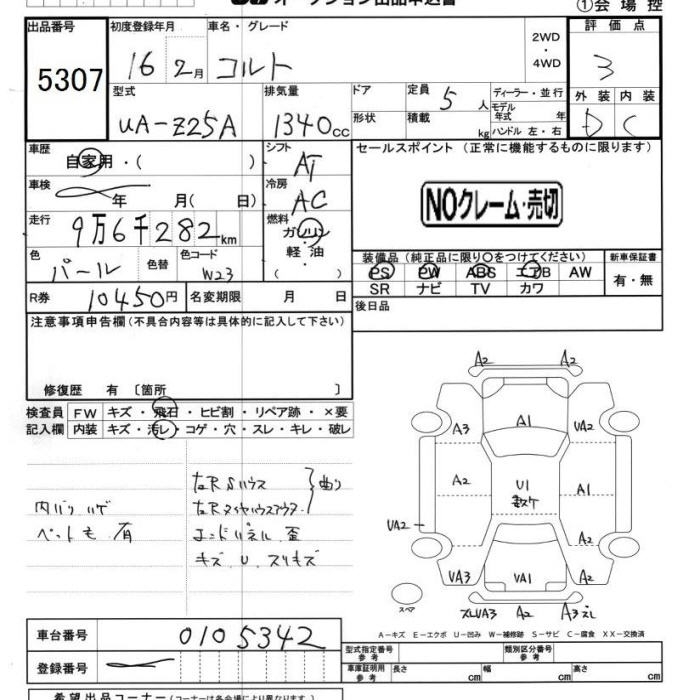 オークション出品申込書
①会場控
出品番号 初度登録年月 車名・グレード 2WD・4WD 評価点
5307 16 2月 コルト 3
型式 排気量 ドア 定員 5人 ディーラー・並行 外装 内装
UA-Z25A 1340cc 形状 積載 kg モデル年式 年 ハンドル 左・右 D C
車歴 自家用・( ) シフト AT セールスポイント (正常に機能するものに限ります)
車検 年 月( 日) 冷房 AC
NOクレーム・売切
走行 9万6千282km 燃料 ガソリン・軽油 ( )
色 パール 色替 色コード W23
装備品(純正品に限り〇をつけてください) 新車保証書
PS PW ABS エアB AW 有・無
SR ナビ TV カワ
R券 10450円 名変期限 月 日 後日品
注意事項申告欄(不具合内容等は具体的に記入して下さい)
修復歴 有 〔箇所 〕
検査員 FW キズ・飛石・ヒビ割・リペア跡・×要
記入欄 内装 キズ・汚レ・コゲ・穴・スレ・キレ・破レ
右RSハウス 曲り
内バリ ハゲ 右Rタイヤハウスアウター
ペット毛 有 エンドパネル 歪
キズ、U、スリキズ
A2 A2
A3 A1 UA2
A2 U1 A1
UA2 A2
UA3 UA1 A2
スペア ズレUA3 A2 A3ズレ
A-キズ E-エクボ U-凹み W-補修跡 S-サビ C-腐食 XX-交換済
車台番号 0105342
登録番号
型式指定番号 参考 類別区分番号 参考
車庫証明用 参考 長さ cm 幅 cm 高さ cm
希望出品コーナー(コーナーは各会場により異なります。)